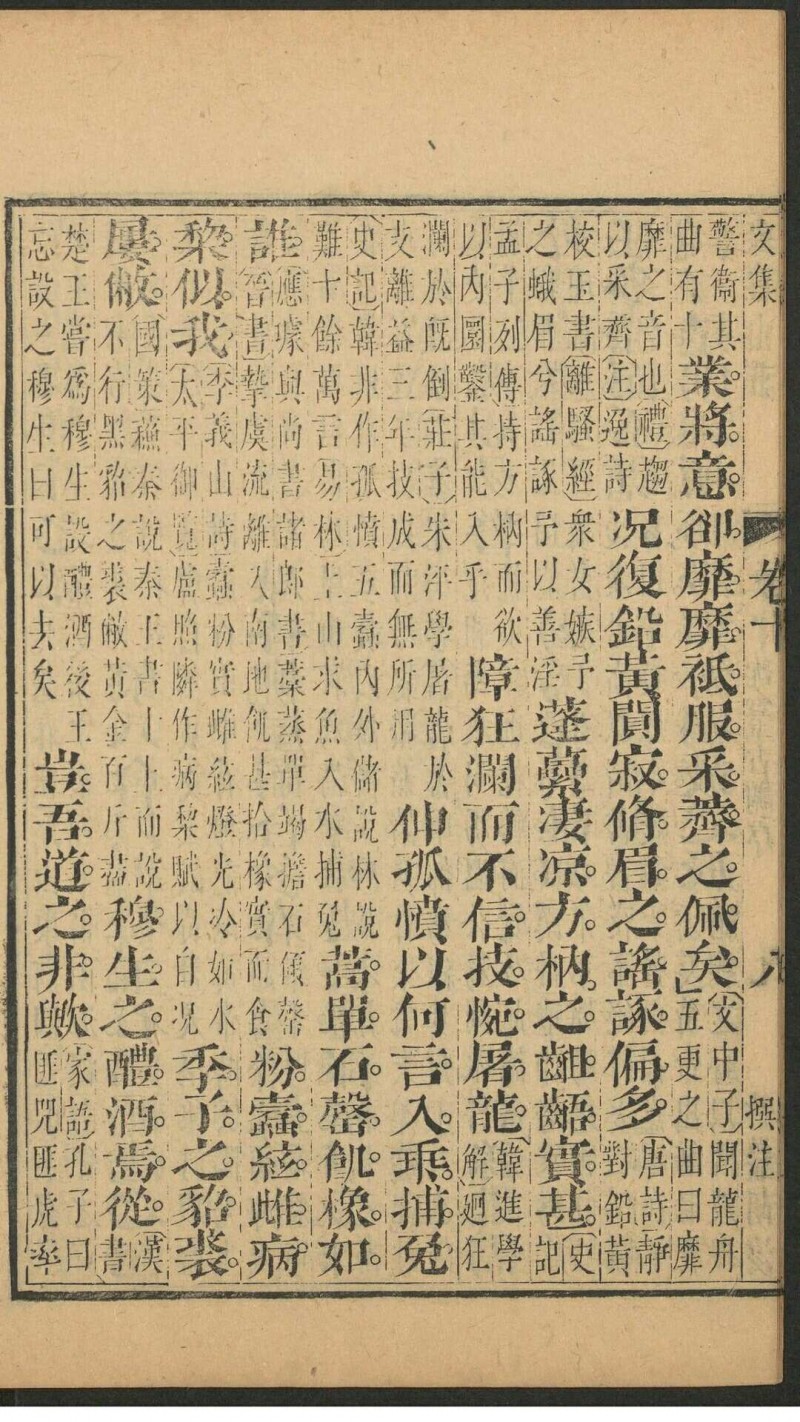 文集 卷十 八 撰注
警衞其曲有十業將意卻靡靡祗服采薺之佩矣文中子聞龍舟五更之曲曰靡
靡之音也禮趨以采齊注逸詩况復鉛黃閴寂脩眉之謠諑偏多唐詩靜對鉛黃
校玉書離騷經衆女嫉予之蛾眉兮謠諑予以善淫蓬藾淒凉方枘之齟齬實甚史記
孟子列傳持方枘而欲以內圜鑿其能入乎障狂瀾而不信技惋屠龍韓進學解廻狂
瀾於旣倒莊子朱泙學屠龍於支離益三年技成而無所用伸孤憤以何言入乘捕兔
史記韓非作孤憤五蠹內外儲說林說難十餘萬言易林上山求魚入水捕兔蒿單石罄飢橡如
誰應璩與尚書諸郎書藁蒸單竭擔石傾罄晉書摯虞流離入南地飢甚拾橡實而食粉蠹絃雌病
棃似我李義山詩蠹粉實雌絃燈光冷如水太平御覽盧照隣作病棃賦以自况季子之貂裘
屢敝國策蘇秦說秦王書十上而說不行黑貂之裘敝黃金百斤盡穆生之醴酒焉從漢書
楚王嘗爲穆生設醴酒後王忘設之穆生曰可以去矣豈吾道之非歟家語孔子曰匪兕匪虎率